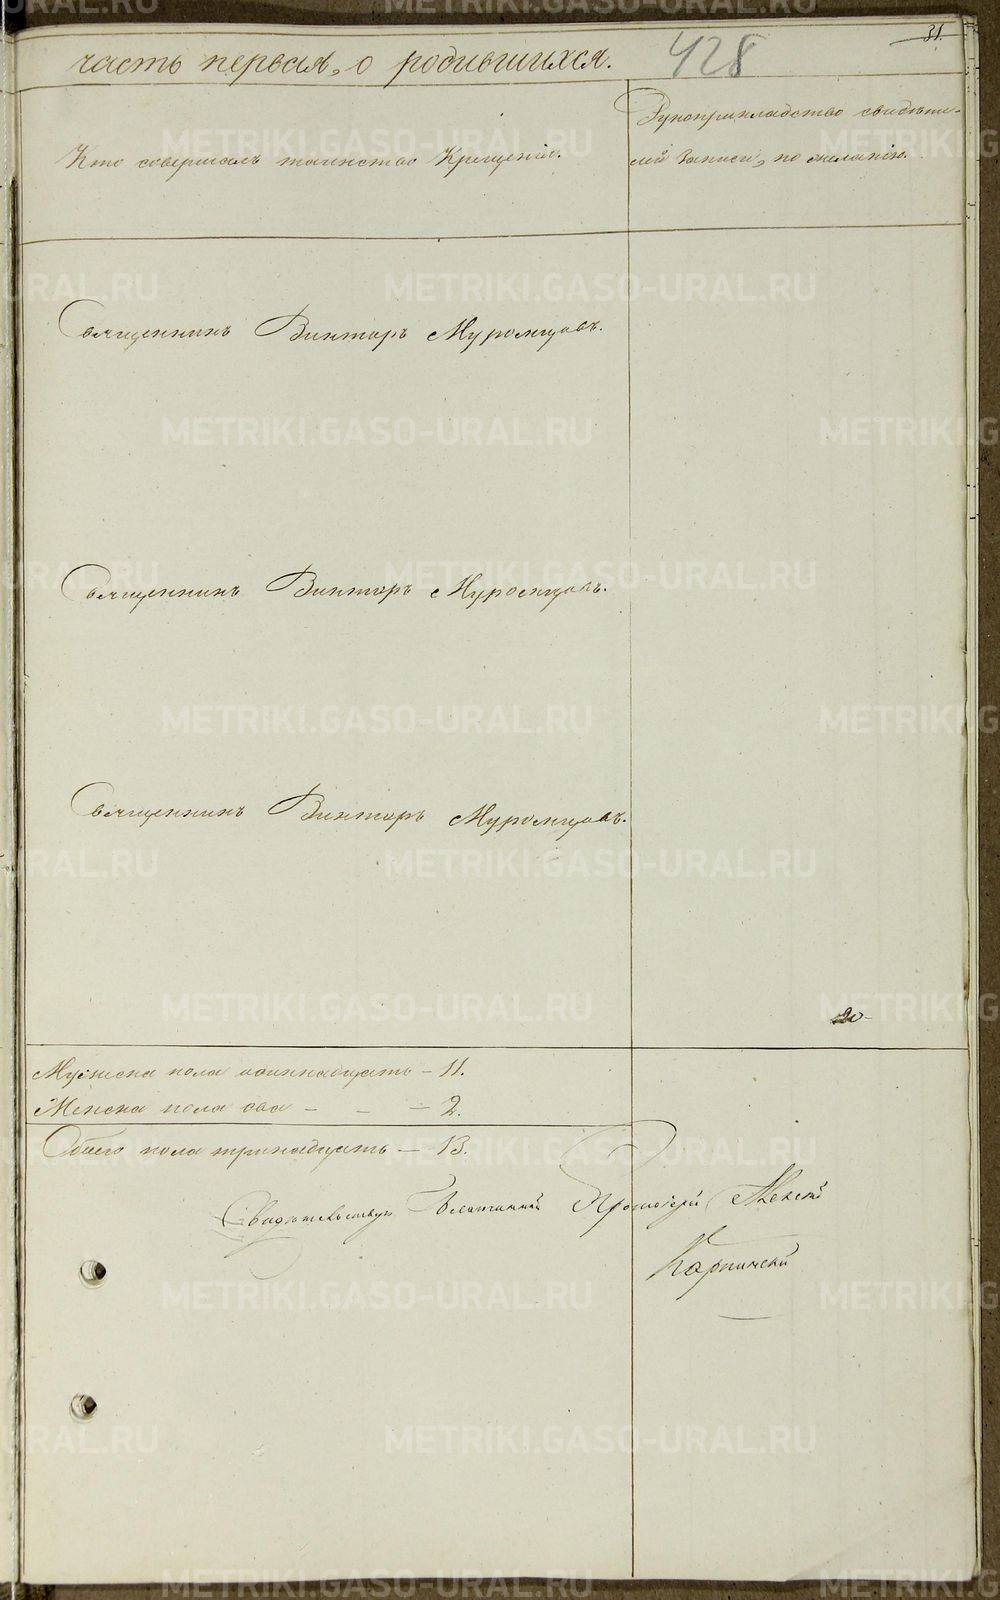 31.
часть первая, о родившихся. 428
Кто совершалъ таинство Крещенія.
Рукоприкладство свидѣте-
лей записи, по желанію.
Священникъ Викторъ Муромцовъ.
Священникъ Викторъ Муромцовъ.
Священникъ Викторъ Муромцовъ.
20
Мужеска пола одиннадцать – 11.
Женска пола два – – – 2.
Обоего пола тринадцать – 13.
Свидѣтельствуи Благочинный Протоіерей Алексій
Карпинскій
METRIKI.GASO-URAL.RU